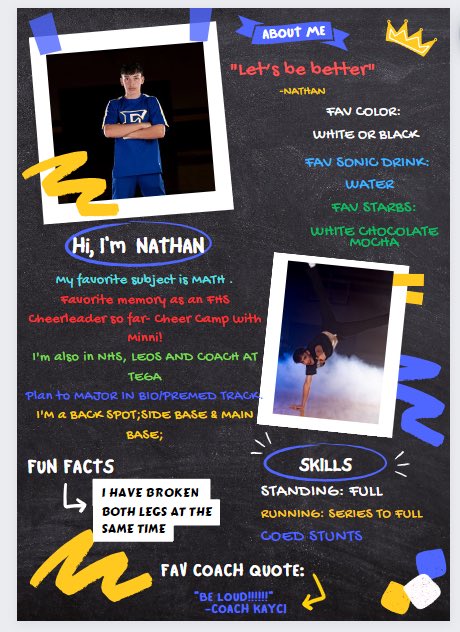 ABOUT ME
"Let's be better"
-NATHAN
FAV COLOR:
WHITE OR BLACK
FAV SONIC DRINK:
WATER
FAV STARBS:
WHITE CHOCOLATE
MOCHA
Hi, I'm NATHAN
My favorite subject is MATH .
Favorite memory as an FHS
Cheerleader so far- Cheer Camp with
Minni!
I'm also in NHS, LEOS AND COACH AT
TEGA
Plan to MAJOR IN BIO/PREMED TRACK.
I'M a BACK SPOT;SIDE BASE & MAIN
BASE;
FUN FACTS
I HAVE BROKEN
BOTH LEGS AT THE
SAME TIME
SKILLS
STANDING: FULL
RUNNING: SERIES TO FULL
COED STUNTS
FAV COACH QUOTE:
"BE LOUD!!!!!!"
-COACH KAYCI